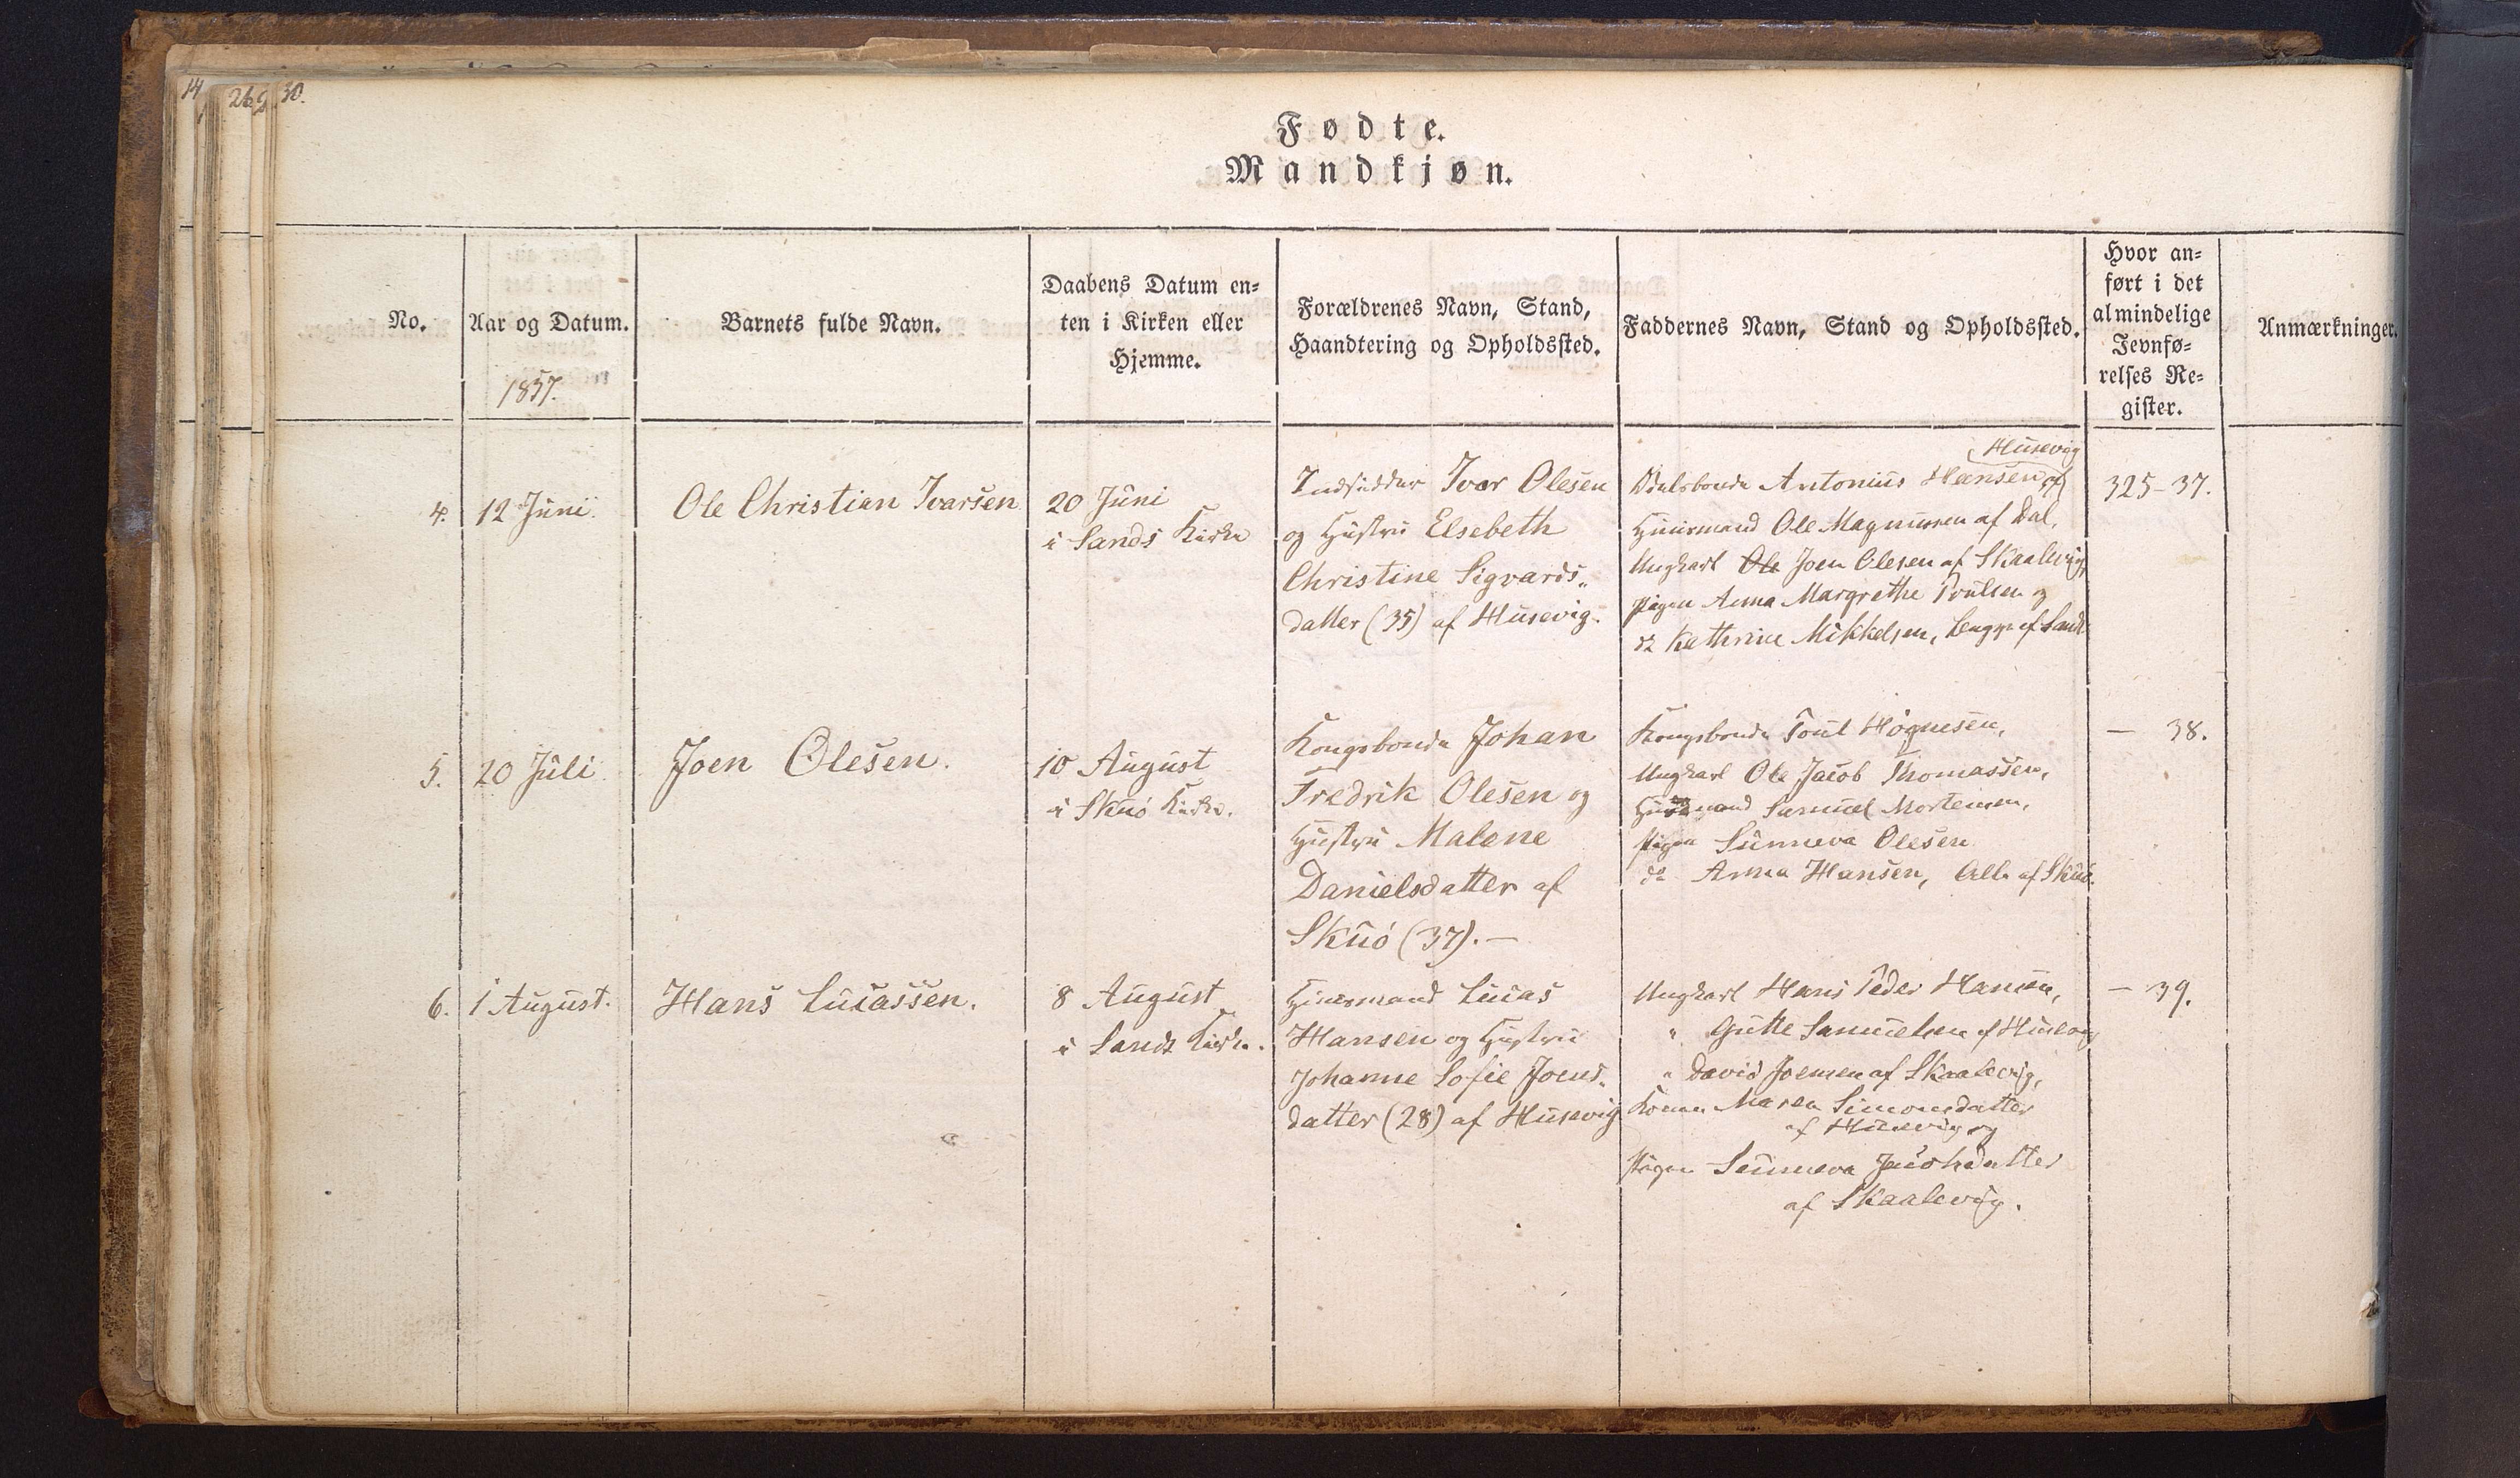 14
26
30.
Fødte.
Mandkjøn.
No.
Aar og Datum.
1857.
Barnets fulde Navn.
Daabens Datum en-
ten i Kirken eller
Hjemme.
Forældrenes Navn, Stand,
Haandtering og Opholdssted.
Faddernes Navn, Stand og Opholdssted.
Hvor an-
ført i det
almindelige
Jevnfø-
relses Re-
gister.
Anmærkninger.
4.
12 Juni.
Ole Christian Ivarsen
20 Juni
i Sands Kirke
Indsidder Ivar Olesen
og Hustru Elsebeth
Christine Sigvards-
datter (35) af Husevig.
Husevig
Odelsbonde Antonius Hansen af
Huusmand Ole Magnussen af Dal,
Ungkarl Ole Joen Olesen af Skaalevig,
Pigen Anna Margrethe Poulsen og
do Kathrine Mikkelsen, begge af Sand.
325-37.
5.
20 Juli.
Joen Olesen.
10 August
i Skuø Kirke.
Kongsbonde Johan
Fredrik Olesen og
Hustru Malene
Danielsdatter af
Skuø (37). —
Kongsbonde Poul Høgnesen,
Ungkarl Ole Jacob Thomassen,
Huusmand Samuel Mortensen,
Pigen Sunneva Olesen
do Anna Hansen, Alle af Skuø.
— 38.
6.
1 August.
Hans Lucassen.
8 August
i Sands Kirke.
Huusmand Lucas
Hansen og Hustru
Johanne Sofie Joens-
datter (28) af Husevig
Ungkarl Hans Peder Hansen,
" Gutte Samuelsen af Husevig
" David Joensen af Skaalevig,
Konen Maren Simonsdatter
af Husevig og
Pigen Sunneva Jacobsdatter
af Skaalevig.
— 39.